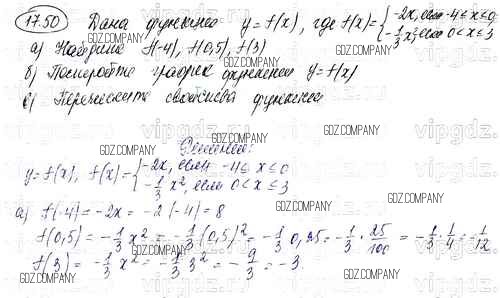 17.50 Дана функция y = f(x), где f(x) = { -2x, если -4 ≤ x ≤ 0
-1/3 x², если 0 < x ≤ 3
а) Найдите f(-4), f(0,5), f(3)
б) Постройте график функции y = f(x)
в) Перечислите свойства функции
Решение:
y = f(x), f(x) = { -2x, если -4 ≤ x ≤ 0
-1/3 x², если 0 < x ≤ 3
а) f(-4) = -2x = -2(-4) = 8
f(0,5) = -1/3 x² = -1/3 (0,5)² = -1/3 0,25 = -1/3 · 25/100 = -1/3 · 1/4 = -1/12
f(3) = -1/3 x² = -1/3 3² = -9/3 = -3